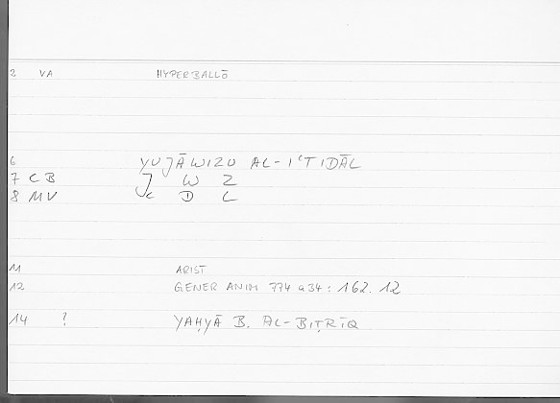 2 VA HYPERBALLŌ
6 YUJĀWIZU AL-I'TIDĀL
7 CB J W Z
8 MV ʿ D L
11 ARIST
12 GENER ANIM 774 a34: 162.12
14 ? YAḤYĀ B. AL-BIṬRĪQ